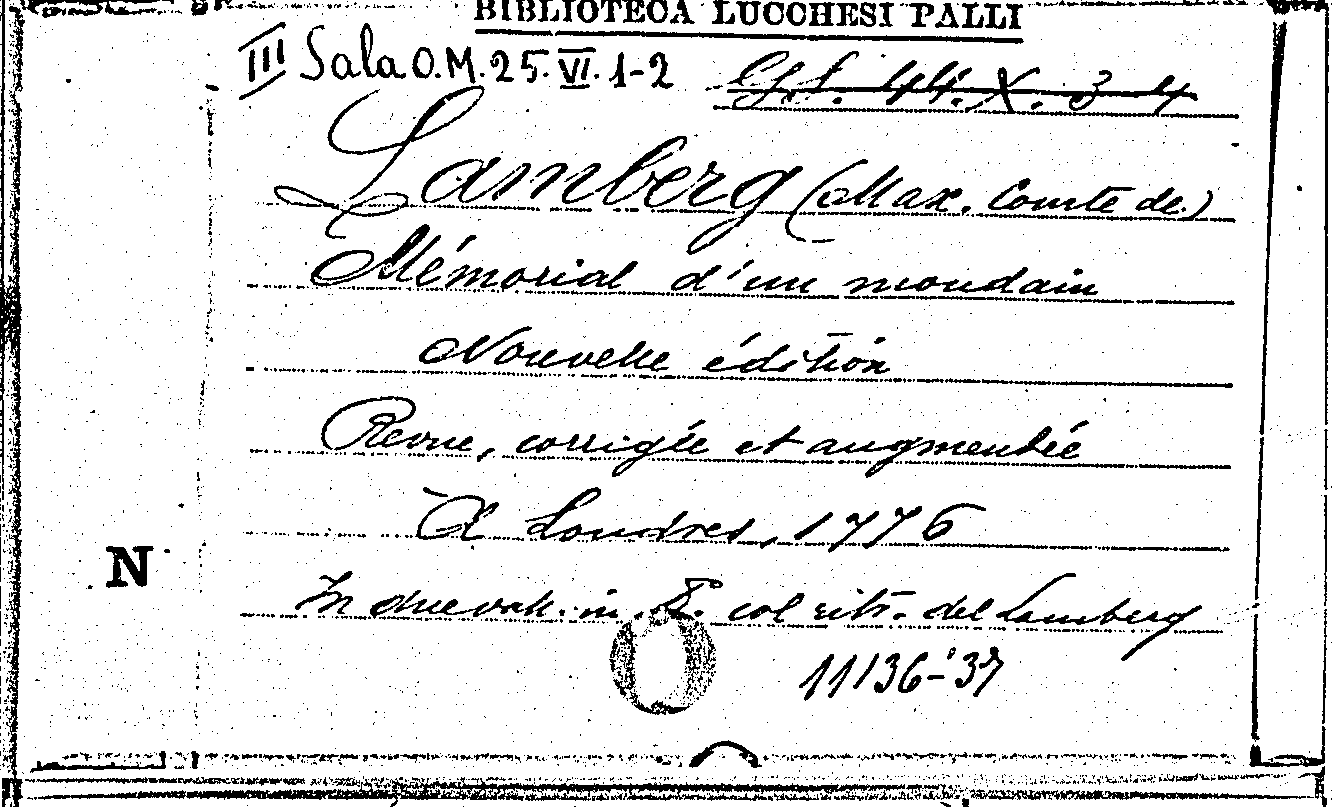 BIBLIOTECA LUCCHESI PALLI
III Sala O.M. 25. VI. 1-2
44. X. 3 4
Lamberg (Max. Comte de.)
Mémorial d'un mondain
Nouvelle édition
Revue, corrigée et augmentée
À Londres, 1776
In due voll. in 8.° col ritr. del Lamberg
N
11136-'37